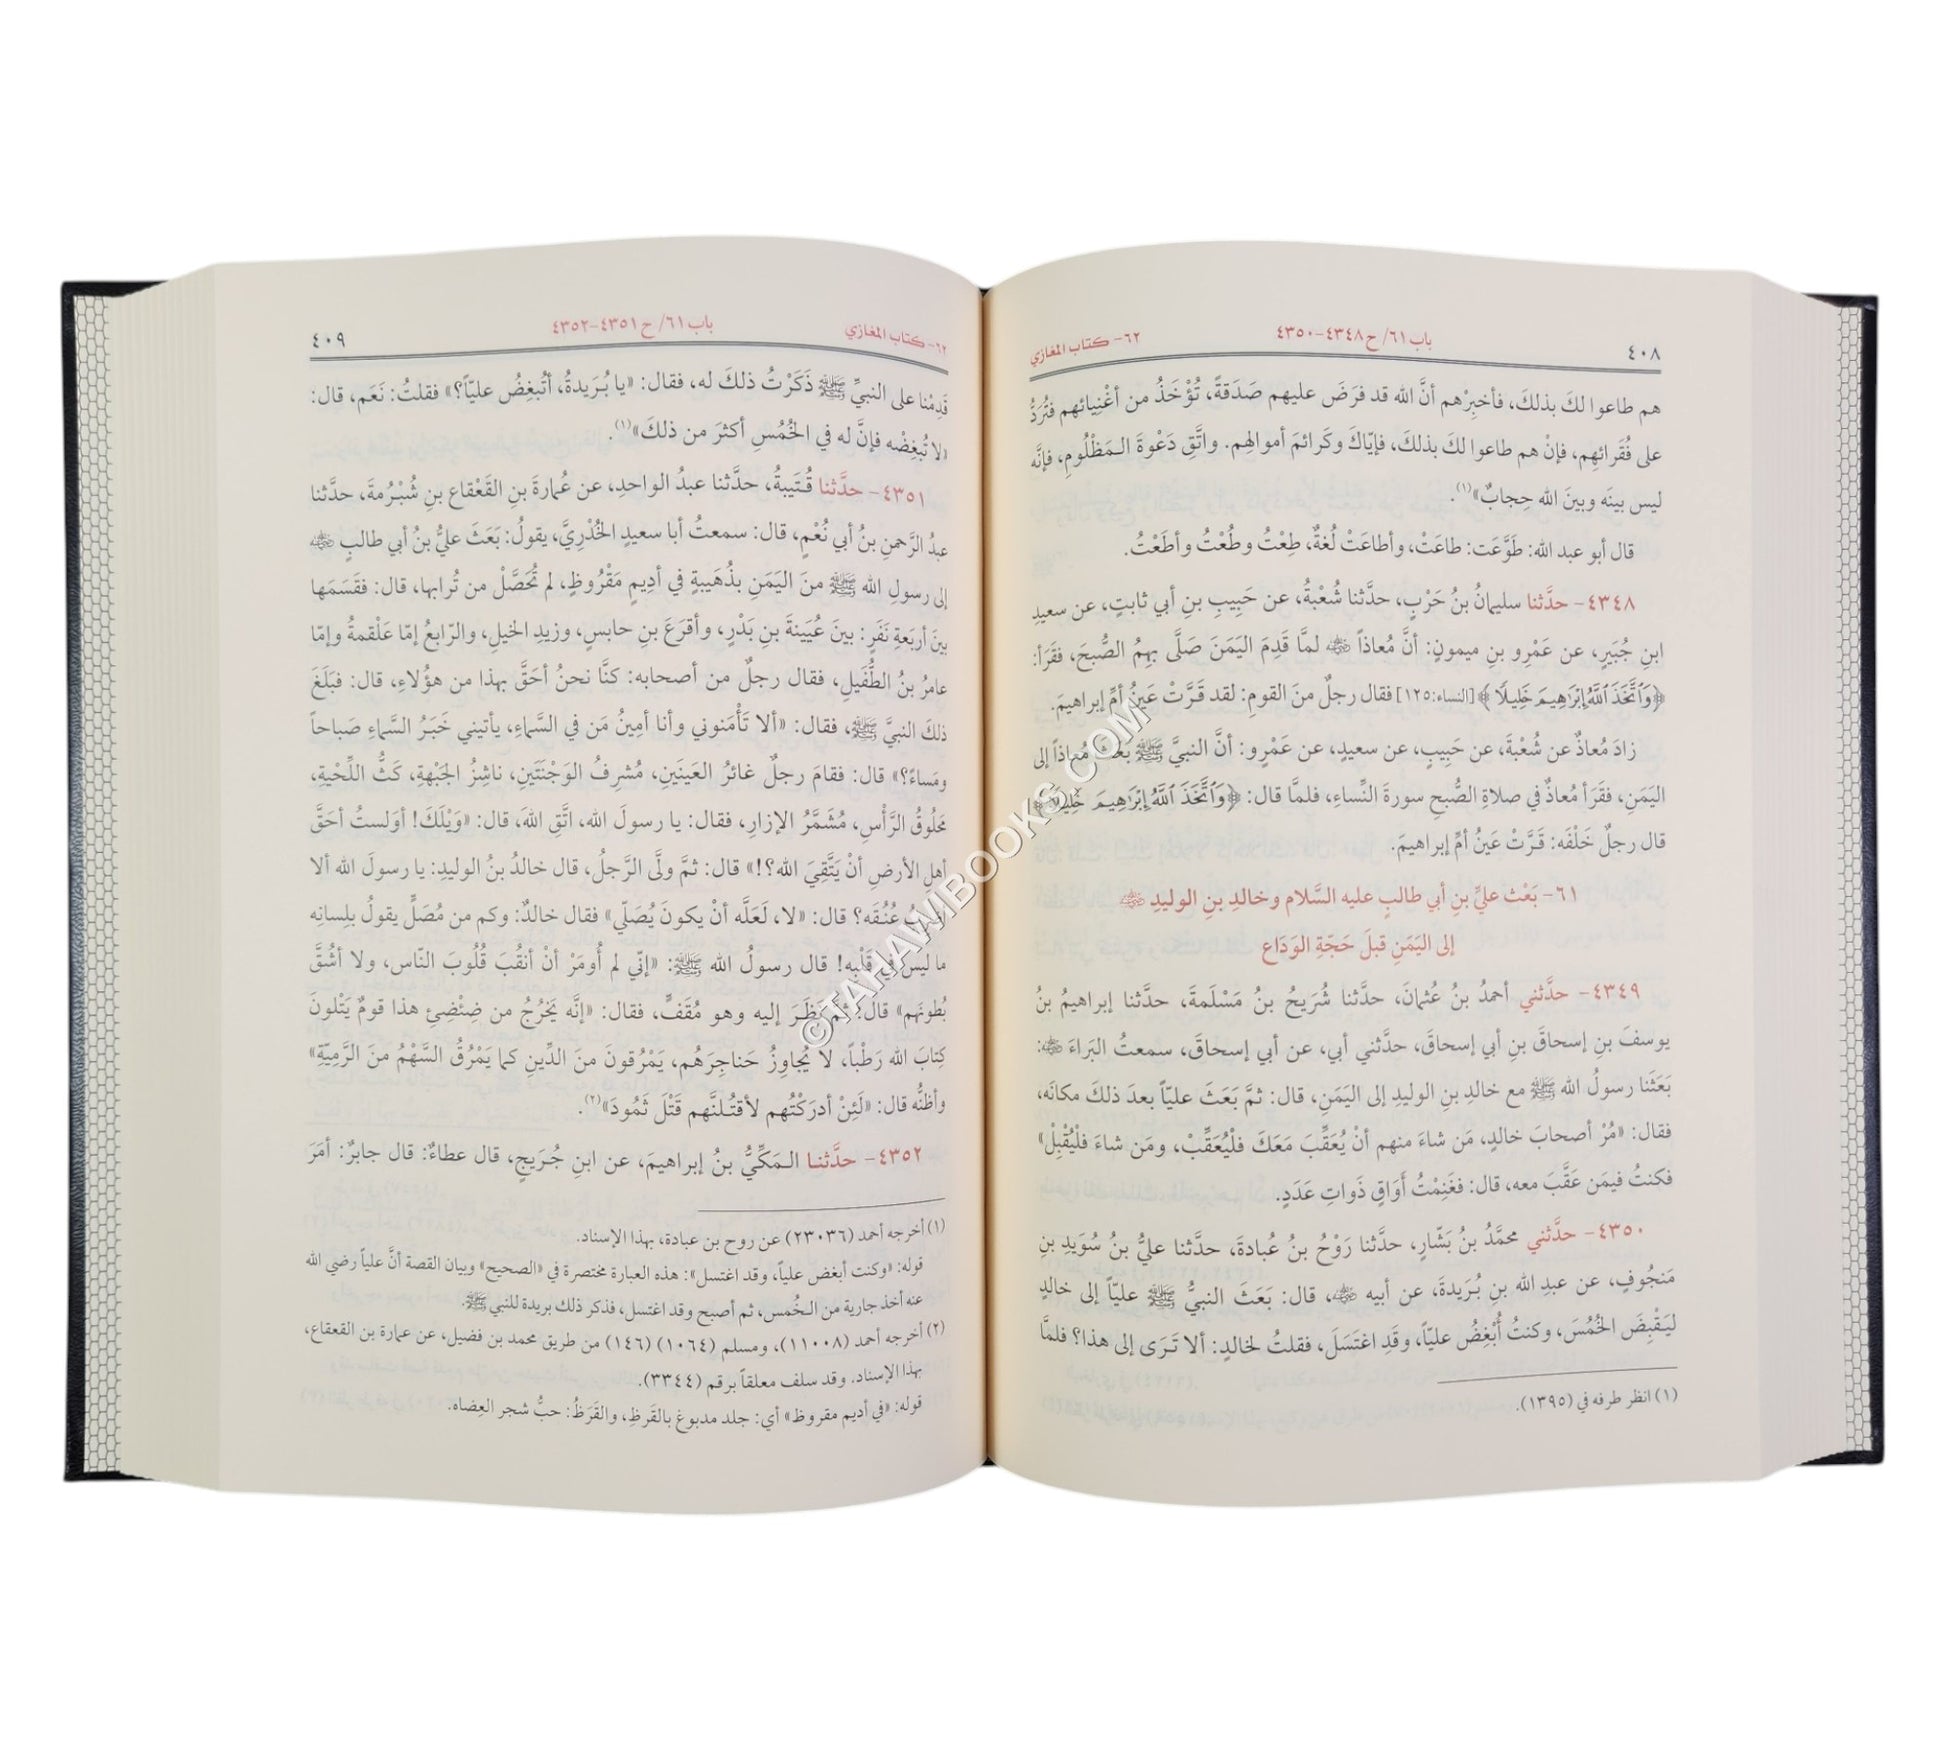 ٤٠٨ باب ٦١/ ح ٤٣٤٨-٤٣٥٠ ٦٢- كتاب المغازي
هم طاعوا لكَ بذلكَ، فأخبِرْهم أنَّ الله قد فرَضَ عليهم صَدَقةً، تُؤْخَذُ من أغْنِيائهم فتُرَدُّ
على فُقَرائهِم، فإنْ هم طاعوا لكَ بذلكَ، فإيّاكَ وكَرائمَ أموالهِم. واتَّقِ دَعْوةَ الـمَظْلُومِ، فإنَّه
ليس بينَه وبينَ الله حِجابٌ»(١).
قال أبو عبد الله: طَوَّعَت: طاعَتْ، وأطاعَتْ لُغةٌ، طِعْتُ وطُعْتُ وأطَعْتُ.
٤٣٤٨- حدَّثنا سليمانُ بنُ حَرْبٍ، حدَّثنا شُعْبةُ، عن حَبِيبِ بنِ أبي ثابتٍ، عن سعيدِ
ابنِ جُبَيرٍ، عن عَمْرِو بنِ ميمونٍ: أنَّ مُعاذاً ﷺ لمَّا قَدِمَ اليَمَنَ صَلَّى بهِمُ الصُّبحَ، فقَرَأ:
﴿وَٱتَّخَذَ ٱللَّهُ إِبْرَاهِيمَ خَلِيلًا﴾ [النساء:١٢٥] فقال رجلٌ منَ القومِ: لقد قَرَّتْ عَينُ أمِّ إبراهيمَ.
زادَ مُعاذٌ عن شُعْبةَ، عن حَبِيبٍ، عن سعيدٍ، عن عَمْرٍو: أنَّ النبيَّ ﷺ بَعَثَ مُعاذاً إلى
اليَمَنِ، فقَرَأ مُعاذٌ في صلاةِ الصُّبحِ سورةَ النِّساءِ، فلمَّا قال: ﴿وَٱتَّخَذَ ٱللَّهُ إِبْرَاهِيمَ خَلِيلًا﴾
قال رجلٌ خَلْفَه: قَرَّتْ عَينُ أمِّ إبراهيمَ.
٦١- بَعْث عليِّ بنِ أبي طالبٍ عليه السَّلام وخالدِ بنِ الوليدِ
إلى اليَمَنِ قبلَ حَجّةِ الوَدَاع
٤٣٤٩- حدَّثني أحمدُ بنُ عُثمانَ، حدَّثنا شُرَيحُ بنُ مَسْلَمةَ، حدَّثنا إبراهيمُ بنُ
يوسفَ بنِ إسحاقَ بنِ أبي إسحاقَ، حدَّثني أبي، عن أبي إسحاقَ، سمعتُ البَراءَ :
بَعَثَنا رسولُ الله ﷺ مع خالدِ بنِ الوليدِ إلى اليَمَنِ، قال: ثمَّ بَعَثَ عليّاً بعدَ ذلكَ مكانَه،
فقال: «مُرْ أصحابَ خالدٍ، مَن شاءَ منهم أنْ يُعَقِّبَ مَعَكَ فلْيُعَقِّبْ، ومَن شاءَ فلْيُقْبِلْ»
فكنتُ فيمَن عَقَّبَ معه، قال: فغَنِمْتُ أَوَاقٍ ذَواتِ عَدَدٍ.
٤٣٥٠- حدَّثني محمَّدُ بنُ بَشّارٍ، حدَّثنا رَوْحُ بنُ عُبادةَ، حدَّثنا عليُّ بنُ سُوَيدِ بنِ
مَنجُوفٍ، عن عبدِ الله بنِ بُرَيدةَ، عن أبيه ، قال: بَعَثَ النبيُّ ﷺ عليّاً إلى خالدٍ
ليَقْبِضَ الخُمُسَ، وكنتُ أُبْغِضُ عليّاً، وقَدِ اغتَسَلَ، فقلتُ لخالدٍ: ألا تَرَى إلى هذا؟ فلمَّا
(١) انظر طرفه في (١٣٩٥).
٦٢- كتاب المغازي باب ٦١/ ح ٤٣٥١-٤٣٥٢ ٤٠٩
قَدِمْنا على النبيِّ ﷺ ذَكَرْتُ ذلكَ له، فقال: «يا بُرَيدةُ، أتُبغِضُ عليّاً؟» فقلتُ: نَعَم، قال:
«لا تُبغِضْه فإنَّ له في الخُمُسِ أكثرَ من ذلكَ»(١).
٤٣٥١- حدَّثنا قُتَيبةُ، حدَّثنا عبدُ الواحدِ، عن عُمارةَ بنِ القَعْقاع بنِ شُبْرُمةَ، حدَّثنا
عبدُ الرَّحمنِ بنُ أبي نُعْمٍ، قال: سمعتُ أبا سعيدٍ الخُدْرِيَّ، يقولُ: بَعَثَ عليُّ بنُ أبي طالبٍ
إلى رسولِ الله ﷺ منَ اليَمَنِ بذُهَيبةٍ في أدِيمٍ مَقْرُوظٍ، لم تُحَصَّلْ من تُرابها، قال: فقَسَمَها
بينَ أربَعةِ نَفَرٍ: بينَ عُيَينةَ بنِ بَدْرٍ، وأقرَعَ بنِ حابسٍ، وزيدِ الخيلِ، والرّابعُ إمّا عَلْقمةُ وإمّا
عامرُ بنُ الطُّفَيلِ، فقال رجلٌ من أصحابه: كنَّا نحنُ أحَقَّ بهذا من هؤُلاءِ، قال: فبَلَغَ
ذلكَ النبيَّ ﷺ، فقال: «ألا تَأْمَنوني وأنا أمِينُ مَن في السَّماءِ، يأتيني خَبَرُ السَّماءِ صَباحاً
ومَساءً؟» قال: فقامَ رجلٌ غائرُ العَينَينِ، مُشرِفُ الوَجْنَتَينِ، ناشِزُ الجَبْهةِ، كَثُّ اللِّحْيةِ،
مَحلُوقُ الرَّأْسِ، مُشَمَّرُ الإزارِ، فقال: يا رسولَ الله، اتَّقِ اللهَ، قال: «وَيْلَكَ! أوَلستُ أحَقَّ
أهلِ الأرضِ أنْ يَتَّقِيَ الله؟!» قال: ثمَّ ولَّى الرَّجلُ، قال خالدُ بنُ الوليدِ: يا رسولَ الله ألا
أضرِبُ عُنُقَه؟ قال: «لا، لَعَلَّه أنْ يكونَ يُصَلّي» فقال خالدٌ: وكم من مُصَلٍّ يقولُ بلِسانِه
ما ليس في قَلْبِه! قال رسولُ الله ﷺ: «إنّي لم أُومَرْ أنْ أنقُبَ قُلُوبَ النّاس، ولا أشُقَّ
بُطونَهم» قال: ثمَّ نَظَرَ إليه وهو مُقَفٍّ، فقال: «إنَّه يَخرُجُ من ضِئْضِئِ هذا قومٌ يَتْلونَ
كِتابَ الله رَطْباً، لا يُجاوِزُ حَناجِرَهُم، يَمْرُقونَ منَ الدِّينِ كما يَمْرُقُ السَّهْمُ منَ الرَّمِيّةِ»
وأظنُّه قال: «لَئِنْ أدرَكْتُهم لأقتُلنَّهم قَتْلَ ثَمُودَ»(٢).
٤٣٥٢- حدَّثنا المَكِّيُّ بنُ إبراهيمَ، عن ابنِ جُرَيجٍ، قال عطاءٌ: قال جابرٌ: أمَرَ
(١) أخرجه أحمد (٢٣٠٣٦) عن روح بن عبادة، بهذا الإسناد.
قوله: «وكنت أبغض علياً، وقد اغتسل»: هذه العبارة مختصرة في «الصحيح» وبيان القصة أنَّ علياً رضي الله
عنه أخذ جارية من الخُمس، ثم أصبح وقد اغتسل، فذكر ذلك بريدة للنبي ﷺ.
(٢) أخرجه أحمد (١١٠٠٨)، ومسلم (١٠٦٤) (١٤٦) من طريق محمد بن فضيل، عن عمارة بن القعقاع،
بهذا الإسناد. وقد سلف معلقاً برقم (٣٣٤٤).
قوله: «في أديم مقروظ» أي: جلد مدبوغ بالقَرظِ، والقَرَظُ: حبُّ شجر العِضاه.
©TAHAWIBOOKS.COM